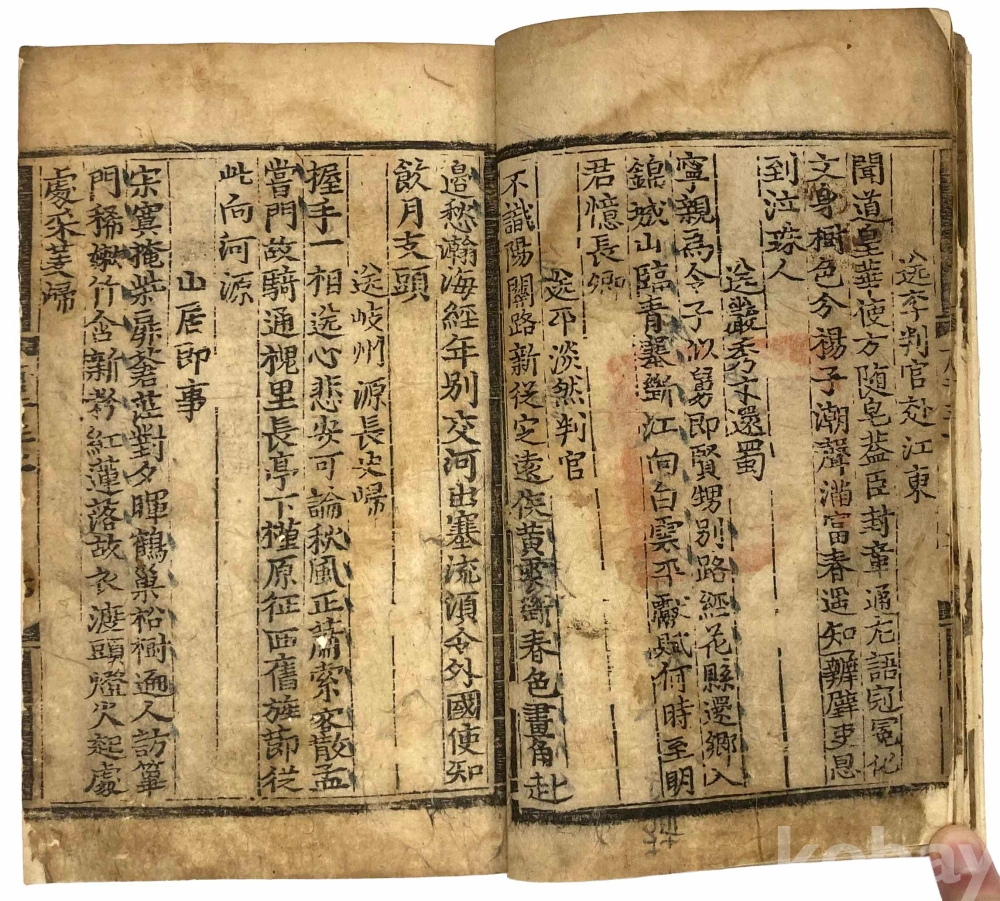 送李判官赴江東
聞道皇華使方随皂葢臣封章通左語冠冕化
文身樹色分揚子潮聲滿富春遥知辨璧吏恩
到泣珠人
送嚴秀才還蜀
寧親爲令子似舅即賢甥別路經花縣還鄉入
錦城山臨青塞斷江向白雲平獻賦何時至明
君憶長卿
送平淡然判官
不識陽關路新從定遠侯黄雲斷春色畫角起
邉愁瀚海經年別交河出塞流湏令外國使知
飲月支頭
送岐州源長史歸
握手一相送心悲安可論秋風正蕭索客散孟
嘗門故騎通槐里長亭下槿原征西舊旌節從
此向河源
山居即事
寂寞掩柴扉蒼茫對夕暉鶴巢松樹遍人訪蓽
門稀嫩竹含新粉紅蓮落故衣渡頭燈火起處
處采菱歸
kobay